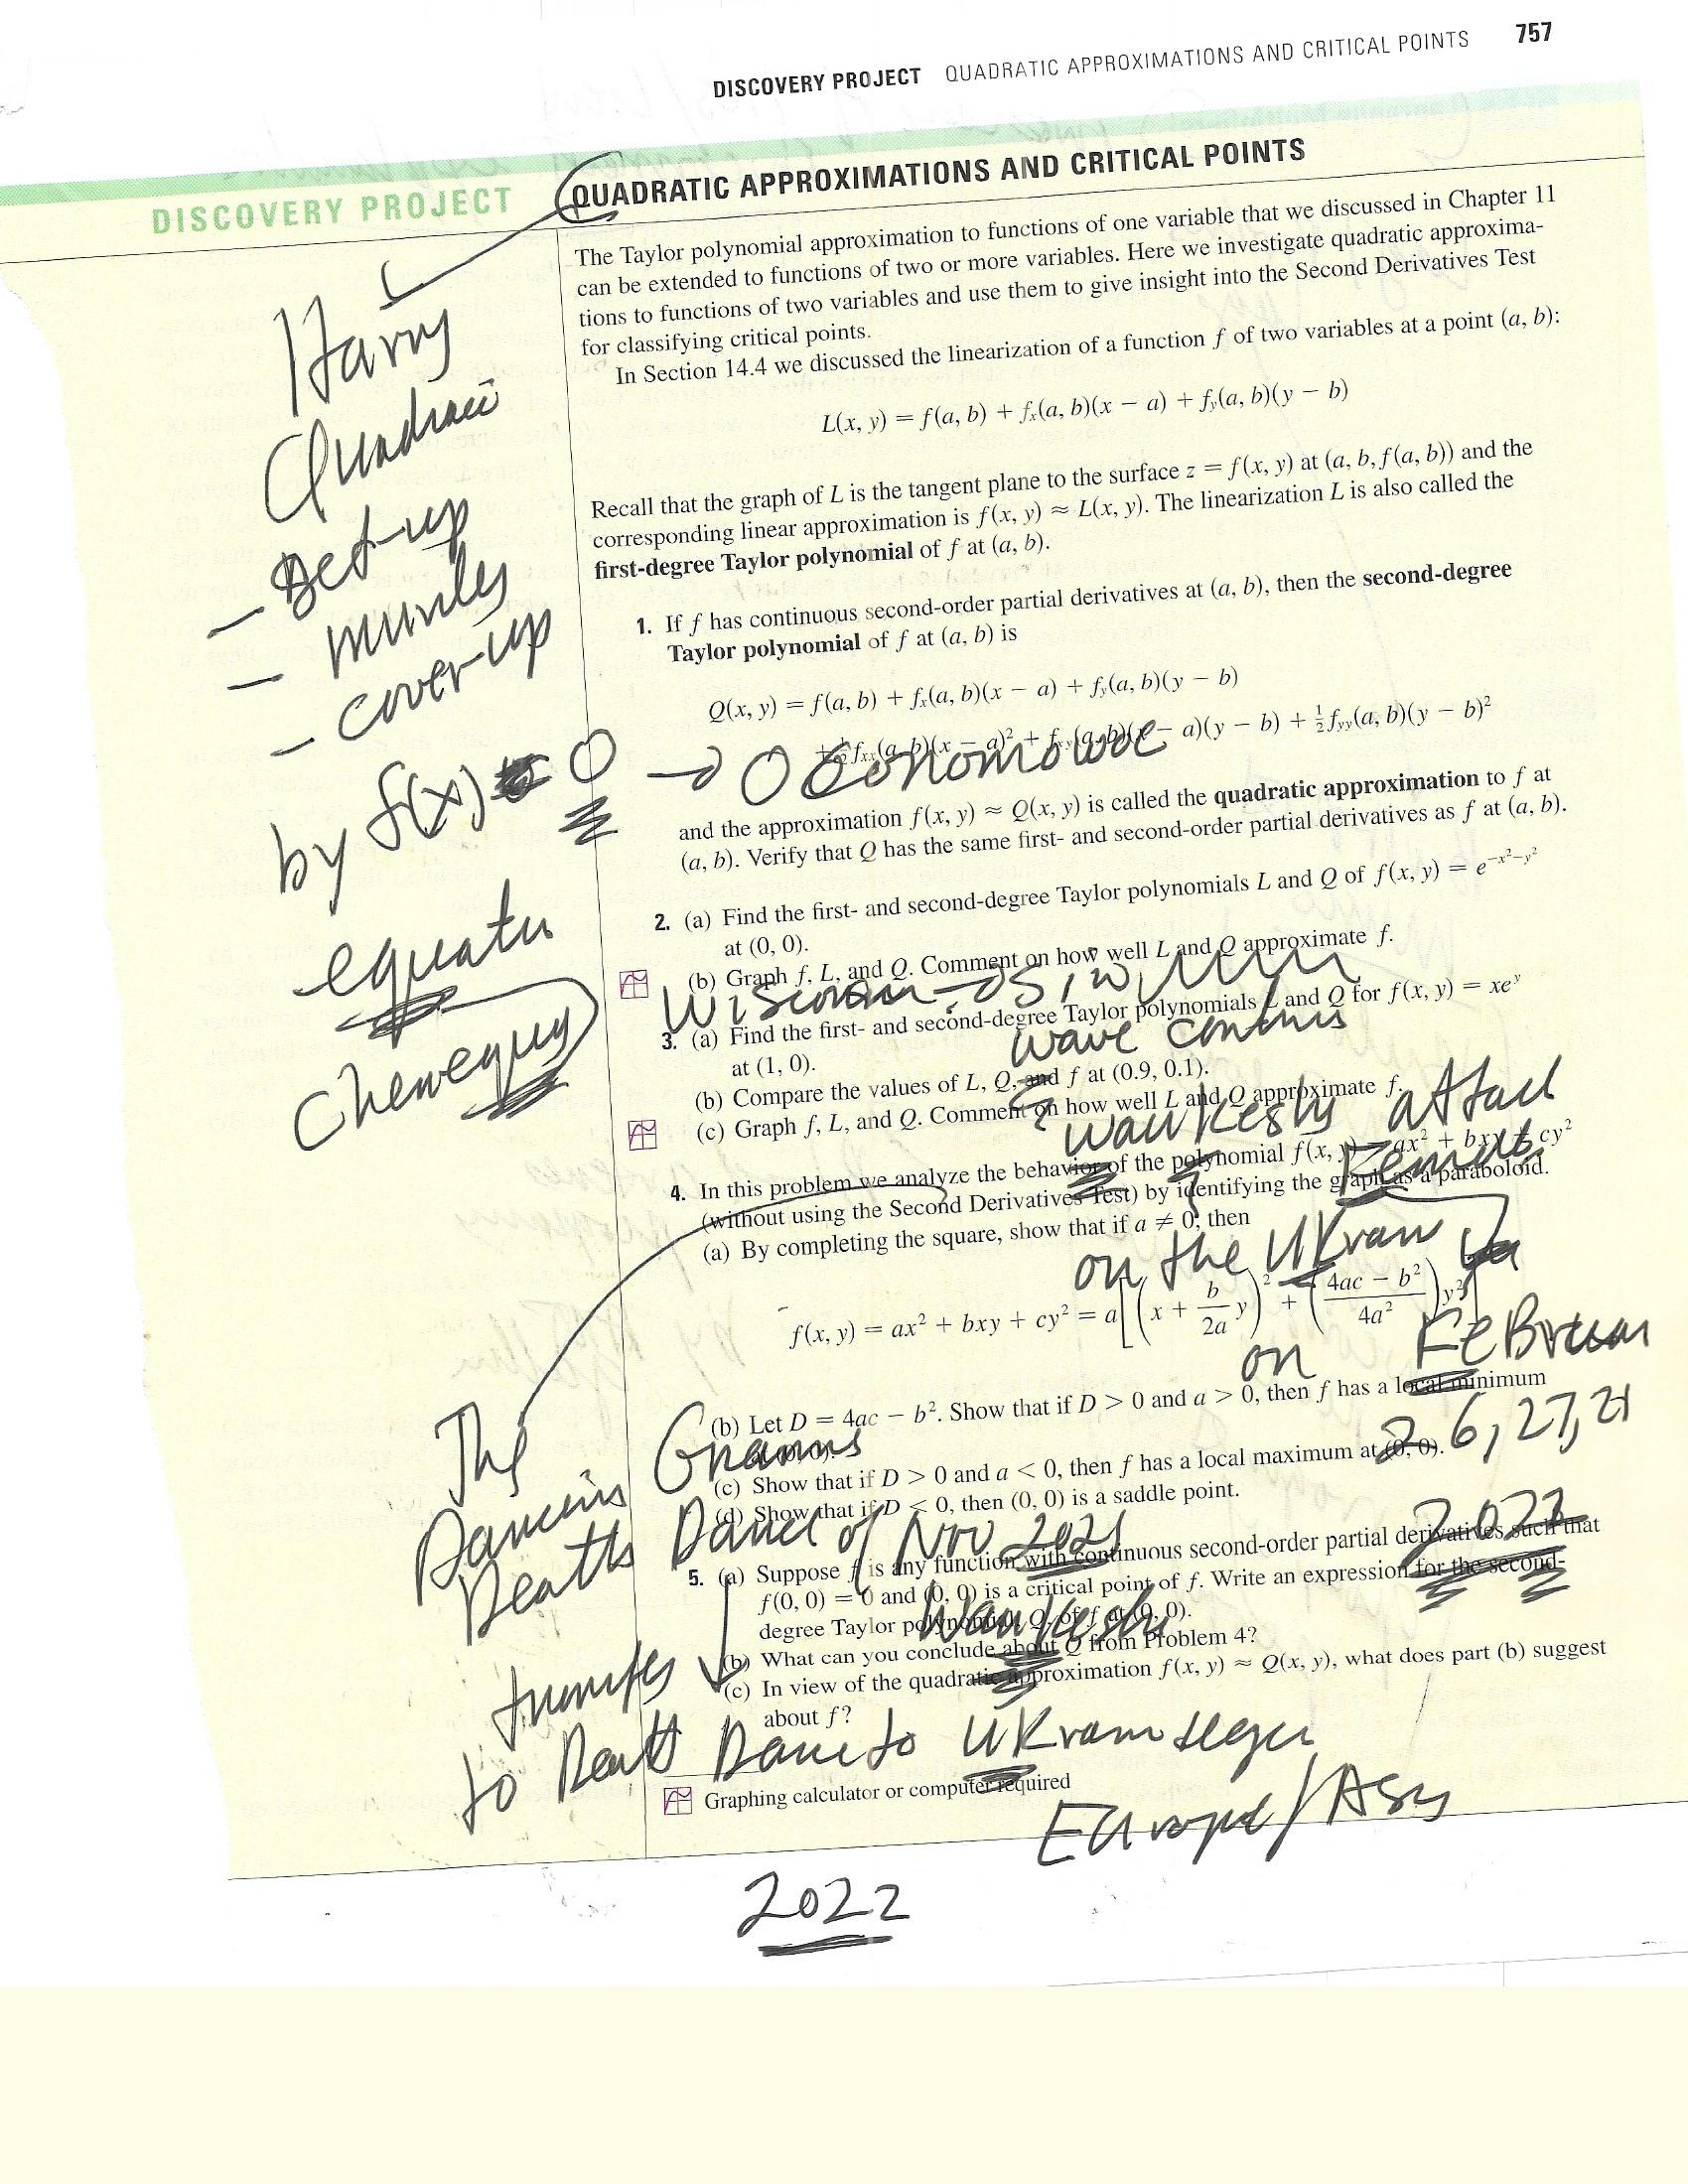 DISCOVERY PROJECT QUADRATIC APPROXIMATIONS AND CRITICAL POINTS 757
DISCOVERY PROJECT QUADRATIC APPROXIMATIONS AND CRITICAL POINTS
The Taylor polynomial approximation to functions of one variable that we discussed in Chapter 11
can be extended to functions of two or more variables. Here we investigate quadratic approxima-
tions to functions of two variables and use them to give insight into the Second Derivatives Test
for classifying critical points.
In Section 14.4 we discussed the linearization of a function f of two variables at a point (a, b):
L(x, y) = f(a, b) + fx(a, b)(x − a) + fy(a, b)(y − b)
Recall that the graph of L is the tangent plane to the surface z = f(x, y) at (a, b, f(a, b)) and the
corresponding linear approximation is f(x, y) ≈ L(x, y). The linearization L is also called the
first-degree Taylor polynomial of f at (a, b).
1. If f has continuous second-order partial derivatives at (a, b), then the second-degree
Taylor polynomial of f at (a, b) is
Q(x, y) = f(a, b) + fx(a, b)(x − a) + fy(a, b)(y − b)
+ ½ fxx(a, b)(x − a)² + fxy(a, b)(x − a)(y − b) + ½ fyy(a, b)(y − b)²
and the approximation f(x, y) ≈ Q(x, y) is called the quadratic approximation to f at
(a, b). Verify that Q has the same first- and second-order partial derivatives as f at (a, b).
2. (a) Find the first- and second-degree Taylor polynomials L and Q of f(x, y) = e^(−x²−y²)
at (0, 0).
(b) Graph f, L, and Q. Comment on how well L and Q approximate f.
3. (a) Find the first- and second-degree Taylor polynomials L and Q for f(x, y) = xe^y
at (1, 0).
(b) Compare the values of L, Q, and f at (0.9, 0.1).
(c) Graph f, L, and Q. Comment on how well L and Q approximate f.
4. In this problem we analyze the behavior of the polynomial f(x, y) = ax² + bxy + cy²
(without using the Second Derivatives Test) by identifying the graph as a paraboloid.
(a) By completing the square, show that if a ≠ 0, then
f(x, y) = ax² + bxy + cy² = a[(x + b/2a y)² + (4ac − b²/4a²)y²]
(b) Let D = 4ac − b². Show that if D > 0 and a > 0, then f has a local minimum
at (0, 0).
(c) Show that if D > 0 and a < 0, then f has a local maximum at (0, 0).
(d) Show that if D < 0, then (0, 0) is a saddle point.
5. (a) Suppose f is any function with continuous second-order partial derivatives such that
f(0, 0) = 0 and (0, 0) is a critical point of f. Write an expression for the second-
degree Taylor polynomial, Q, of f at (0, 0).
(b) What can you conclude about Q from Problem 4?
(c) In view of the quadratic approximation f(x, y) ≈ Q(x, y), what does part (b) suggest
about f?
Graphing calculator or computer required
Harry
– Set-up
– cover-up
by f(x) = 0 → Oconomowoc
Chenequa
wave
attack
on the
on
26, 27, 21
2022
The
Nov 2021
to
Europe/
2022